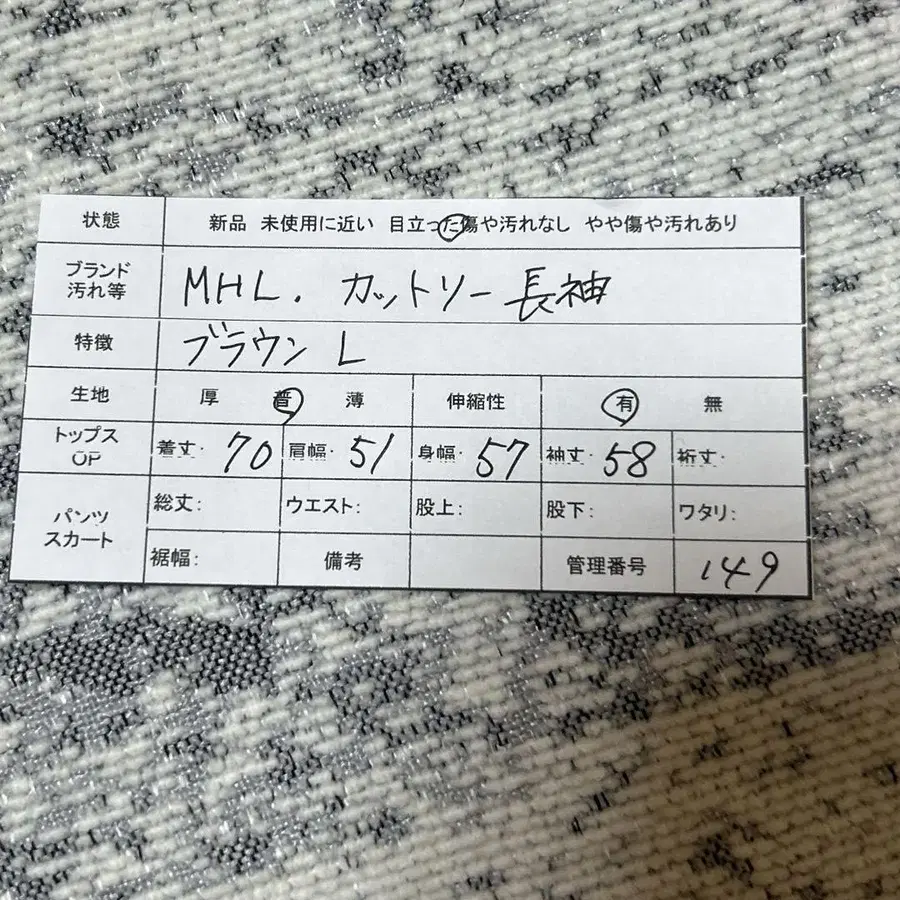 状態 新品 未使用に近い 目立った傷や汚れなし やや傷や汚れあり
ブランド
汚れ等 MHL. カットソー 長袖
特徴 ブラウン L
生地 厚 普 薄 伸縮性 有 無
トップス
OP 着丈・70 肩幅・51 身幅・57 袖丈・58 裄丈・
パンツ
スカート 総丈: ウエスト: 股上: 股下: ワタリ:
裾幅: 備考 管理番号 149